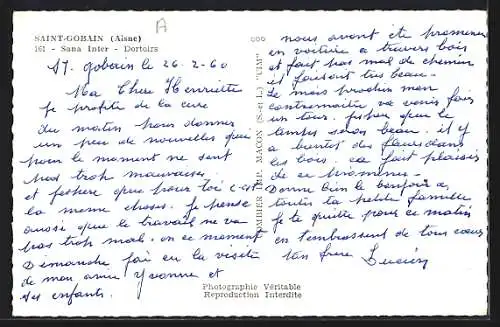 SAINT-GOBAIN (Aisne)
161 - Sana Inter - Dortoirs
A
St. gobain le 26-2-60
Ma Chere Henriette
je profite de la cure
du matin pour donner
un peu de nouvelles qui
pour le moment ne sont
pas trop mauvaises
et j'espere que pour toi c'est
la meme chose. je pense
aussi que le travail ne va
pas trop mal. en ce moment
Dimanche j'ai eu la visite
de mon amie Yvonne et
ses enfants.
COMBIER IMP. MACON (S.-et-L.) "CIM"
nous avont ete promener
en voiture a travers bois
et fait pas mal de chemin
il faisait tres beau.
le mois prochain mon
contremaitre va venir faire
un tour. j'espere que le
temps sera beau. il y
a bientot des fleurs dans
les bois. ca fait plaisir
de se promener.
Donne bien le bonjour a
toute ta petite famille
je te quitte pour ce matin
en t'embrassent de tous coeur
ton frere Lucien
Photographie Véritable
Reproduction Interdite